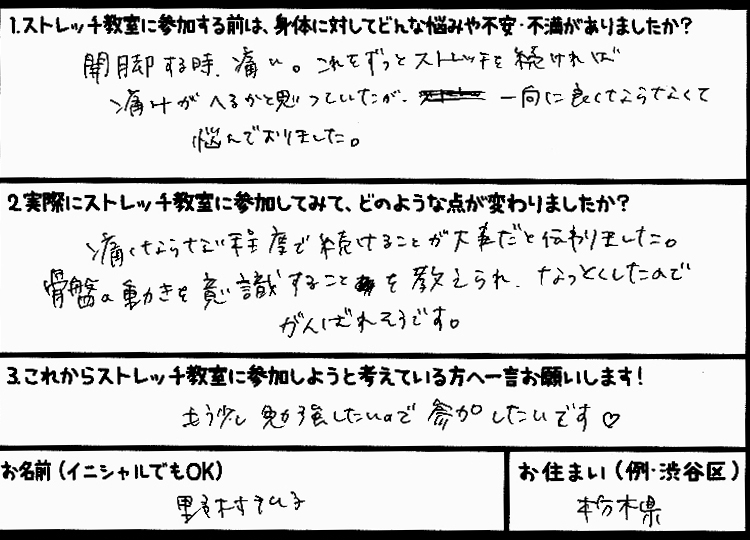 1.ストレッチ教室に参加する前は、身体に対してどんな悩みや不安・不満がありましたか?
開脚する時、痛い。これをずっとストレッチを続ければ
痛みがへるかと思っていたが、一向に良くならなくて
悩んでおりました。
2.実際にストレッチ教室に参加してみて、どのような点が変わりましたか?
痛くならない程度で続けることが大事だと伝わりました。
骨盤の動きを意識することを教えられ、なっとくしたので
がんばれそうです。
3.これからストレッチ教室に参加しようと考えている方へ一言お願いします!
もう少し勉強したいので参加したいです♡
お名前(イニシャルでもOK)
野村
お住まい(例・渋谷区)
栃木県